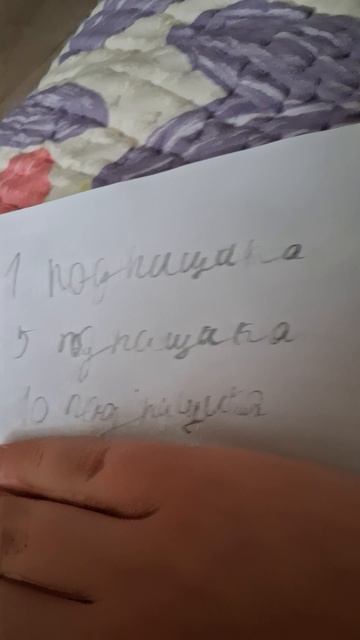 1 подпищика
5 подпищака
10 подпищика